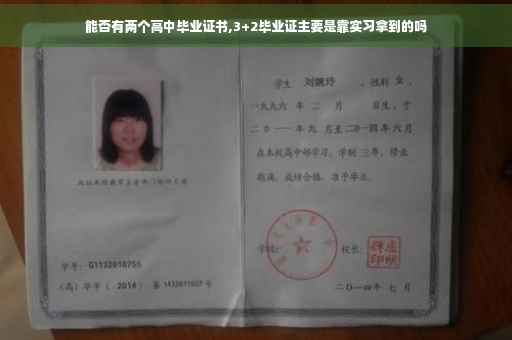 能否有两个高中毕业证书,3+2毕业证主要是靠实习拿到的吗
学生 刘婉玲 ,性别 女 ,
一九九六 年 二 月 日生,于
二〇一一 年 九 月至 二〇一四 年 六 月
在本校高中部学习,学制 三 年,修业
期满,成绩合格,准予毕业。
学校:
校长:
学号: G1132010755
(高)毕字( 2014 )第 1432011027 号
二〇一四年 七 月